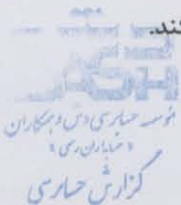 کند.
موسسه حسابرسی دش و همکاران
« حسابداران رسمی »
گزارش حسابرسی